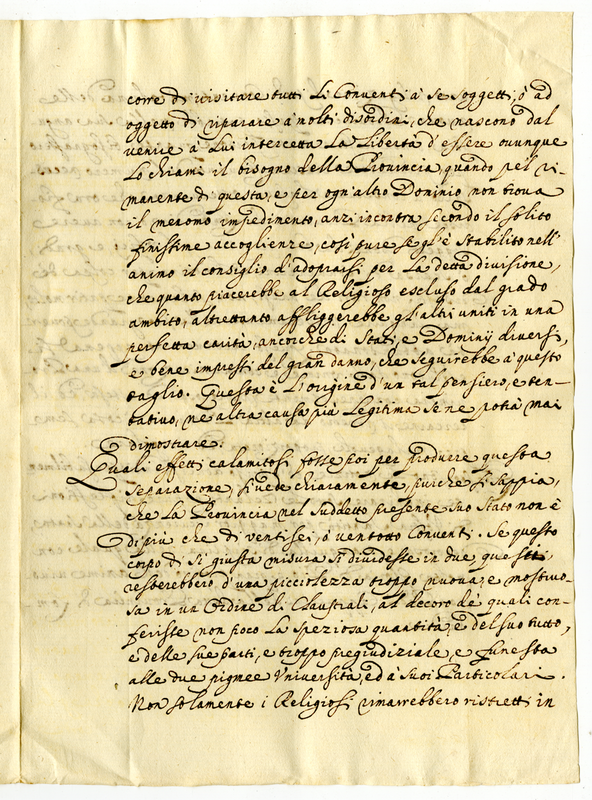 corre di visitare tutti li Conventi à se soggetti, ò ad
oggetto di riparare à molti disordini, che nascono dal
venire à lui intercetta la libertà d'essere ovunque
lo chiami il bisogno della Provincia, quando pel ri-
manente di questa, e per ogn'altro Dominio non trova
il menomo impedimento, anzi incontra secondo il solito
finissime accoglienze, così pure se gl'è stabilito nell'
animo il consiglio d'adoprarsi per la detta divisione,
che quanto piacerebbe al Religioso escluso dal grado
ambito, altrettanto affliggerebbe gl'altri uniti in una
perfetta carità, ancorche di Stati, e Dominij diversi,
e bene impressi del gran danno, che seguirebbe à questo
taglio. Questa è l'origine d'un tal pensiero, e ten-
tativo, ne altra causa più legitima se ne potrà mai
dimostrare.
Quali effetti calamitosi fosse poi per produrre questa
separazione, si vede chiaramente, purche si sappia,
che la Provincia nel suddetto presente suo stato non è
di più che di ventisei, ò ventotto Conventi. Se questo
corpo di sì giusta misura si dividesse in due, questi
resterebbero d'una picciolezza troppo nuova, e mostruo-
sa in un Ordine di Claustrali, al decoro de quali con-
ferisce non poco la speziosa quantità, e del suo tutto,
e delle sue parti, e troppo pregiudiziale, e funesta
alle due pignee Università, ed à suoi Particolari.
Non solamente i Religiosi rimarrebbero ristretti in